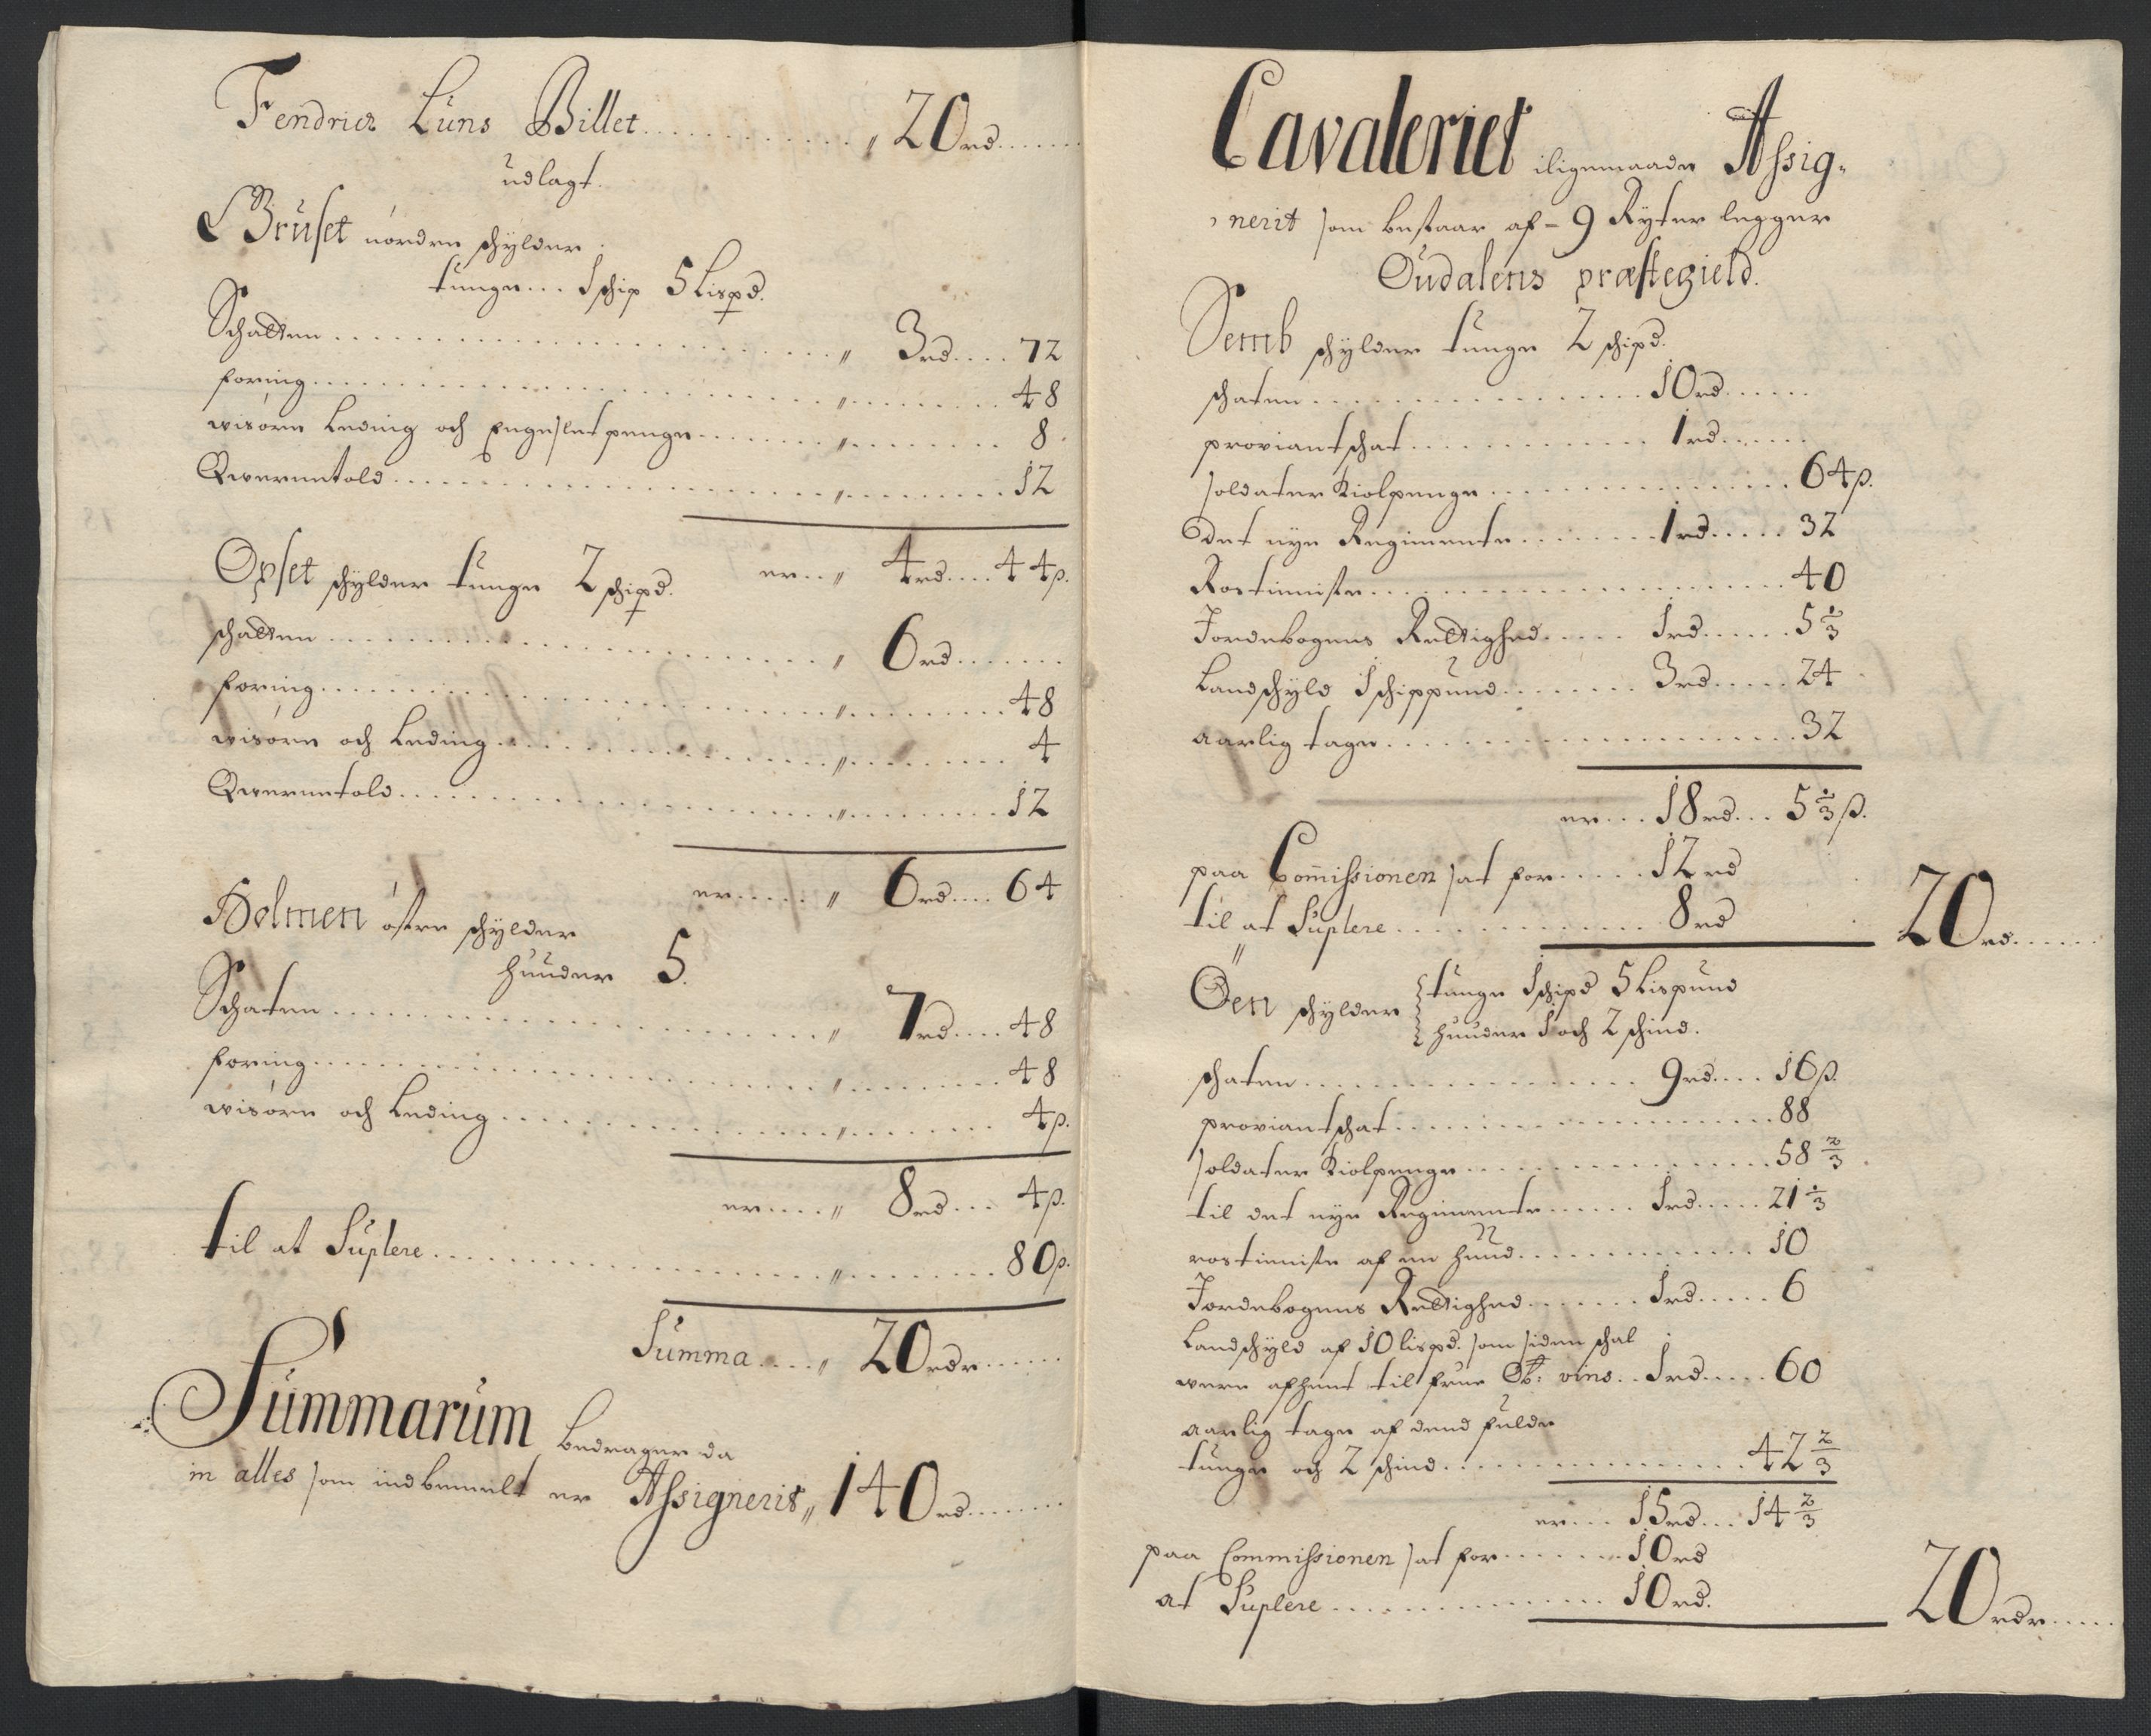 Fendrich Luns Billet.......... „ 20 rd.......
udlagt.
Bruset nordre schylder
tunge... 1 schip 5 Lispd.
Schatten.......... „ 3 rd.... 72
foring.......... „ ......... 48
wisøre Leding och Engeslet penge....... „ ......... 8
Qwerntold.......... „ ......... 12
er... „ 4 rd.... 44 ß.
Opset schylder tunge 2 schipd.
schatten.......... „ 6 rd.......
foring.......... „ ......... 48
wisøre och Leding.......... „ ......... 4
Qwerntold.......... „ ......... 12
er..... „ 6 rd.... 64
Holmen østre schylder
huuder 5.
Schaten.......... „ 7 rd.... 48
foring.......... „ ......... 48
wisøre och Leding.......... „ ......... 4 ß.
er.... „ 8 rd... 4 ß.
til at Suplere.......... „ ......... 80 ß.
Summa.... „ 20 rdr......
Summarum Bedrager da
in alles som indbemelt er Assignerit „ 140 rd......
Cavaleriet iligemaade Assig-
nerit som bestaar af - 9 Ryter legger
Oudalens præstegield.
Semb schylder tunge 2 schipd.
schaten.......... 10 rd......
proviantschat.......... 1 rd......
soldater Kiolpenge.......... 64 ß.
Det nye Regimente........ 1 rd..... 32
Rostieniste.......... 40
Jordebogens Rettighed..... 1 rd...... 5 1/3
Landschyld 1 schippund........ 3 rd..... 24
aarlig tage.......... 32
er... 18 rd... 5 1/3 ß.
paa Commissionen sat for..... 12 rd
til at Suplere.......... 8 rd 20 rd......
Öen schylder tunge 1 schipd 5 Lispund
huuder 1 och 2 schind.
schaten.......... 9 rd.... 16 ß.
proviantschat.......... 88
soldater Kiolpenge.......... 58 2/3
til det nye Regimente...... 1 rd..... 21 1/3
rostieniste af en huud.......... 10
Jordebogens Rettighed....... 1 rd..... 6
Landschyld af 10 lispd. som siden schal
were afhent til frue Ob: vins.. 1 rd..... 60
aarlig tage af dend fulde
tunge och 2 schind.......... 42 2/3
er... 15 rd... 14 2/3
paa Commissionen sat for....... 10 rd
at Suplere.......... 10 rd. 20 rdr.....